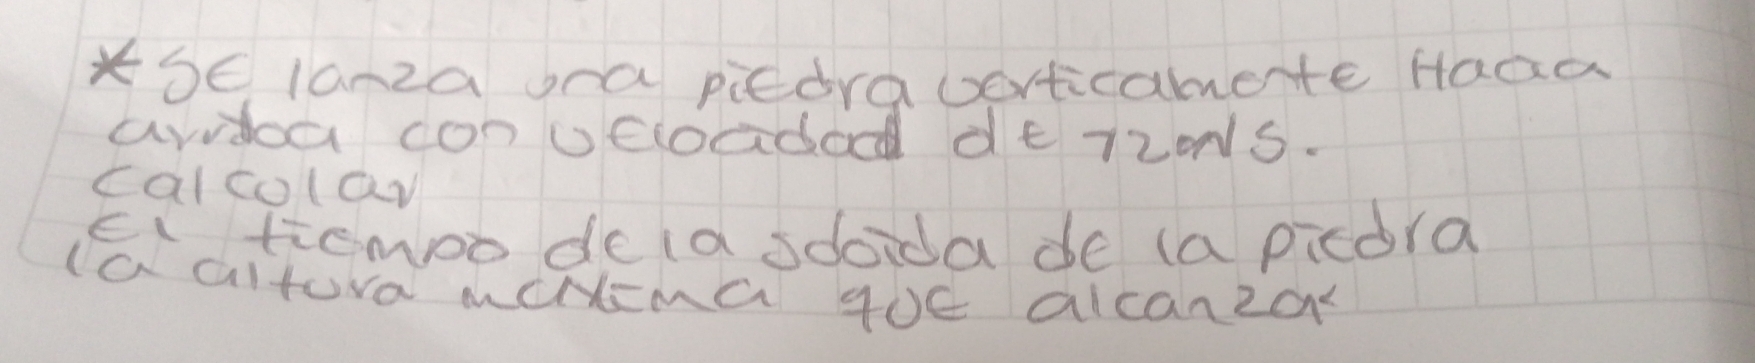 * SE lanza una piedra verticalmente Hacia
arriba con velocidad de 72m/s.
calcular
El tiempo de la subida de la piedra
la altura maxima que alcanza